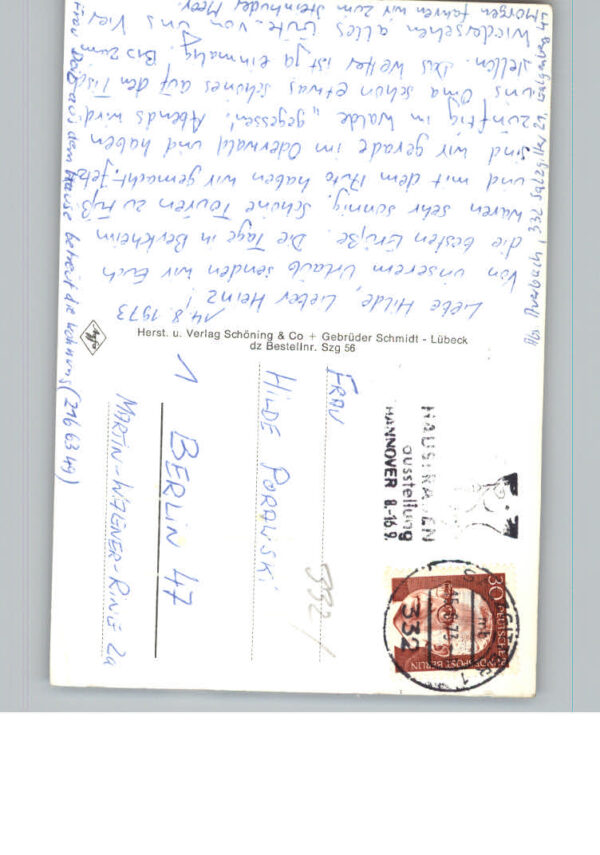 14.8.1973
Liebe Hilde, Lieber Heinz!
Von unserem Urlaub senden wir Euch
die besten Grüße. Die Tage in Berkheim
waren sehr sonnig. Schöne Touren zu Fuß
und mit dem Auto haben wir gemacht. Jetzt
sind wir gerade im Oderwald und haben
zünftig im Walde „gegessen". Abends wird
uns Oma schon etwas schönes auf den Tisch
stellen. Das Wetter ist ja einmalig. Bis zum
Wiedersehen alles Gute von uns Vier
Morgen fahren wir zum Steinhuder Meer.
Frau aus dem Hause betreut die Wohnung (216 63 49)
Abs. Auerbach, 332 Salzgitter 21,
Herst. u. Verlag Schöning & Co + Gebrüder Schmidt - Lübeck
dz Bestellnr. Szg 56
Agfa
HAUSFRAUEN
ausstellung
HANNOVER 8.-16.9.
30
DEUTSCHE
BUNDESPOST BERLIN
SALZGITTER 1
332
Frau
332/
Hilde Porawski
1 Berlin 47
Martin-Wagner-Ring 2a